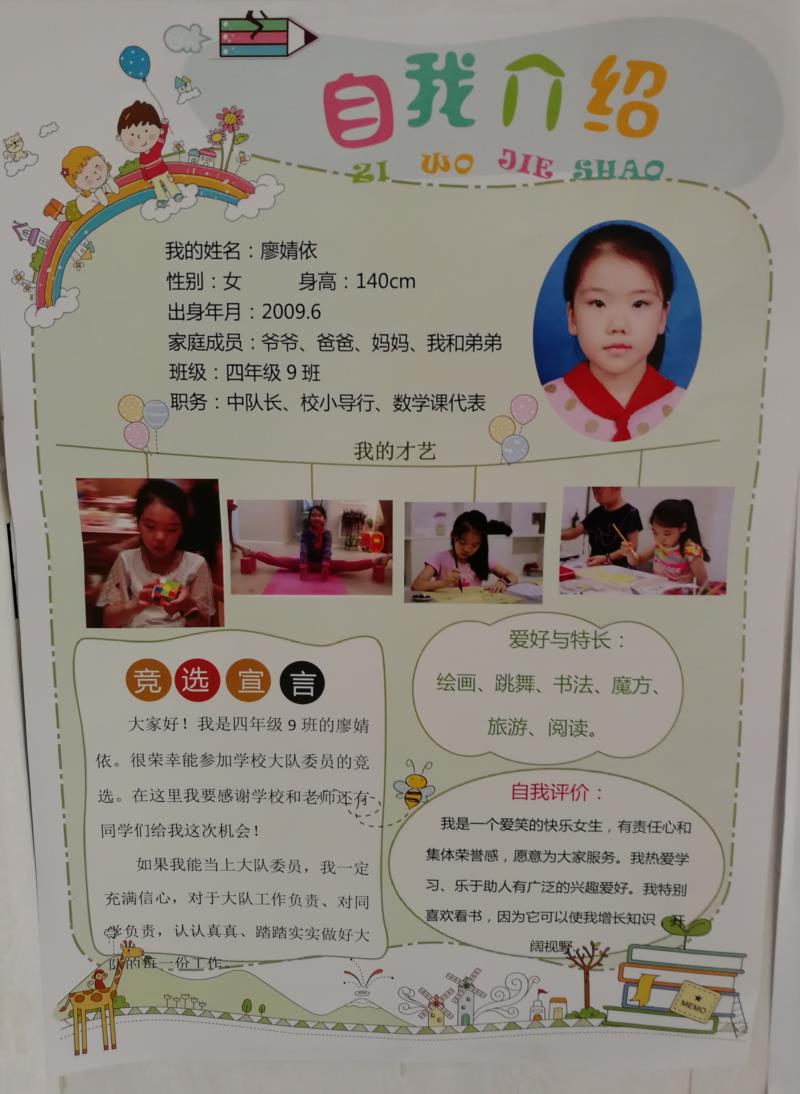 自我介绍
ZI WO JIE SHAO
我的姓名：廖婧依
性别：女 身高：140cm
出身年月：2009.6
家庭成员：爷爷、爸爸、妈妈、我和弟弟
班级：四年级9班
职务：中队长、校小导行、数学课代表
我的才艺
竞选宣言
大家好！我是四年级9班的廖婧
依。很荣幸能参加学校大队委员的竞
选。在这里我要感谢学校和老师还有
同学们给我这次机会！
如果我能当上大队委员，我一定
充满信心，对于大队工作负责、对同
学负责，认认真真、踏踏实实做好大
队的每一份工作。
爱好与特长：
绘画、跳舞、书法、魔方、
旅游、阅读。
自我评价：
我是一个爱笑的快乐女生，有责任心和
集体荣誉感，愿意为大家服务。我热爱学
习、乐于助人有广泛的兴趣爱好。我特别
喜欢看书，因为它可以使我增长知识，开
阔视野。
MEMO